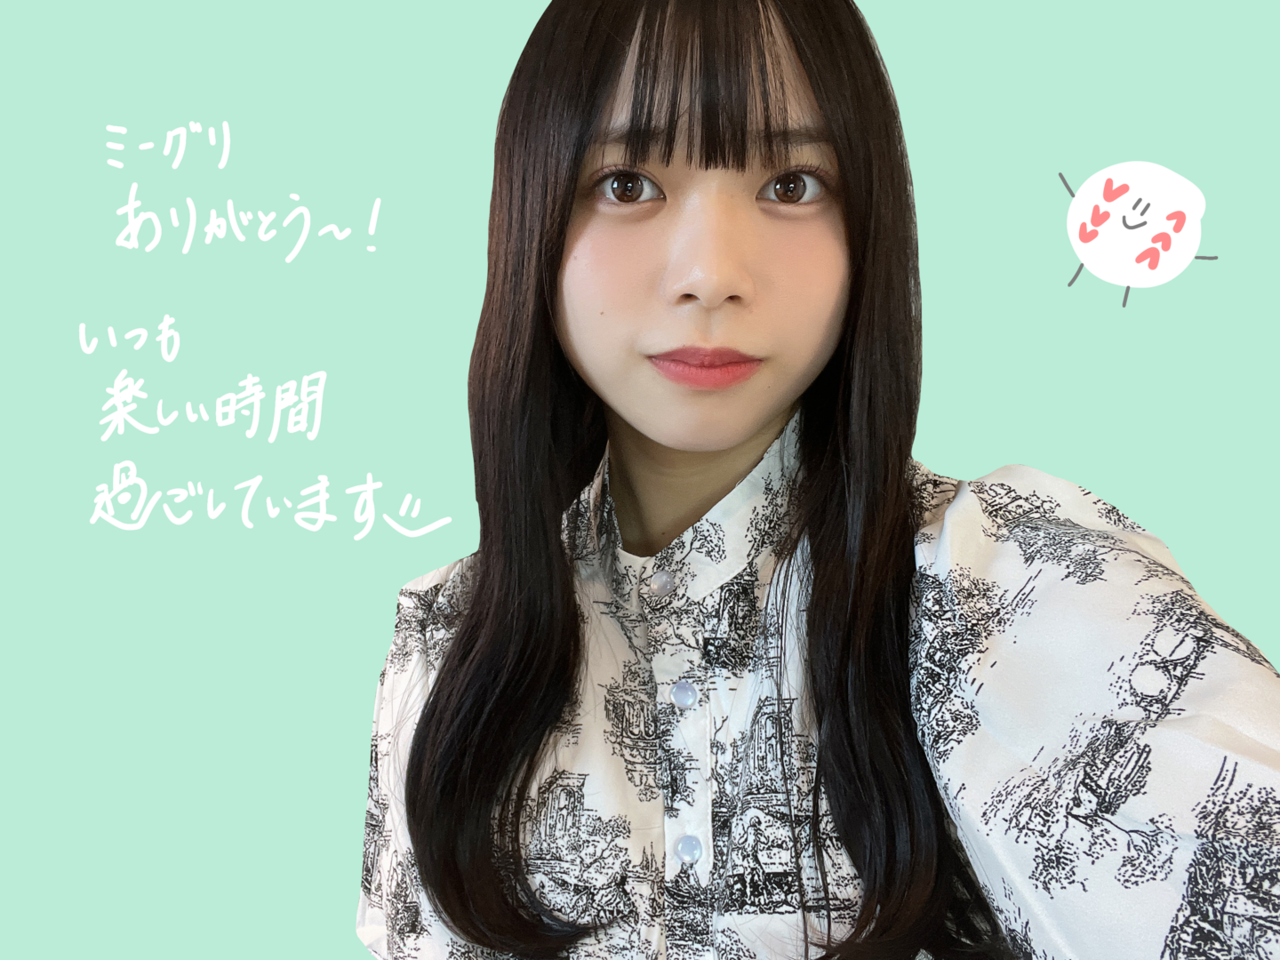 ミーグリ
ありがとう〜!
いつも
楽しい時間
過ごしています